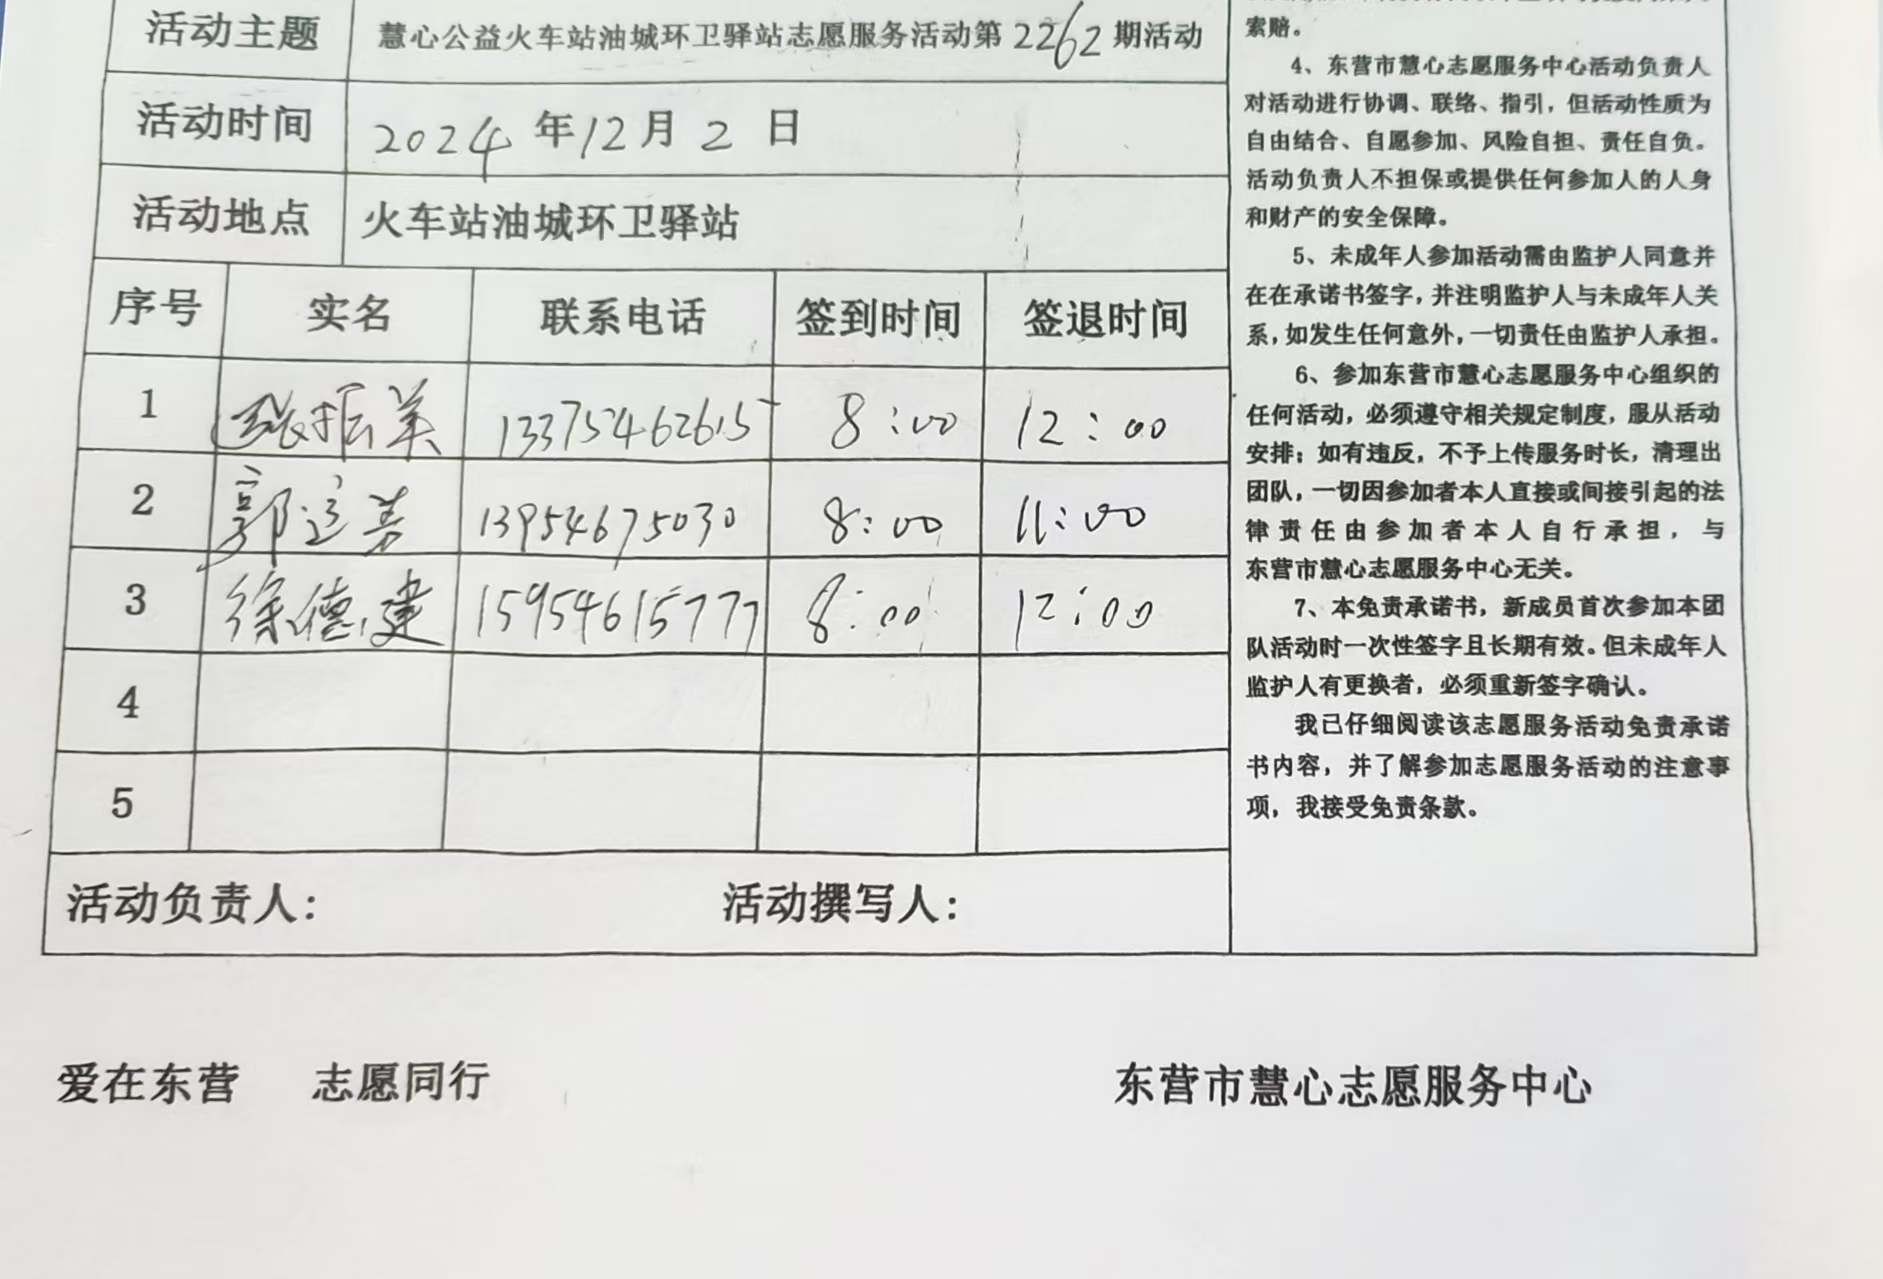 活动主题 慧心公益火车站油城环卫驿站志愿服务活动第2262期活动
活动时间 2024年12月2日
活动地点 火车站油城环卫驿站
序号 实名 联系电话 签到时间 签退时间
1 张振美 13375462615 8:00 12:00
2 郭 13954675030 8:00 11:00
3 徐德建 15954615777 8:00 12:00
4
5
活动负责人: 活动撰写人:
索赔。
4、东营市慧心志愿服务中心活动负责人
对活动进行协调、联络、指引，但活动性质为
自由结合、自愿参加、风险自担、责任自负。
活动负责人不担保或提供任何参加人的人身
和财产的安全保障。
5、未成年人参加活动需由监护人同意并
在在承诺书签字，并注明监护人与未成年人关
系，如发生任何意外，一切责任由监护人承担。
6、参加东营市慧心志愿服务中心组织的
任何活动，必须遵守相关规定制度，服从活动
安排；如有违反，不予上传服务时长，清理出
团队，一切因参加者本人直接或间接引起的法
律责任由参加者本人自行承担，与
东营市慧心志愿服务中心无关。
7、本免责承诺书，新成员首次参加本团
队活动时一次性签字且长期有效。但未成年人
监护人有更换者，必须重新签字确认。
我已仔细阅读该志愿服务活动免责承诺
书内容，并了解参加志愿服务活动的注意事
项，我接受免责条款。
爱在东营 志愿同行 东营市慧心志愿服务中心